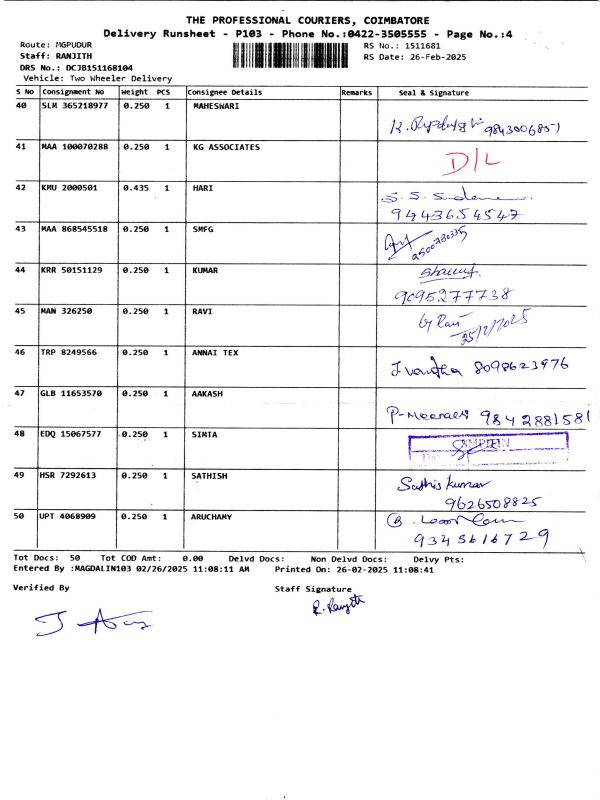 THE PROFESSIONAL COURIERS, COIMBATORE
Delivery Runsheet - P103 - Phone No.:0422-3505555 - Page No.:4
Route: MGPUDUR
RS No.: 1511681
Staff: RANJITH
RS Date: 26-Feb-2025
DRS No.: DCJB151168104
Vehicle: Two Wheeler Delivery
S No Consignment No Weight PCS Consignee Details Remarks Seal & Signature
40 SLM 365218977 0.250 1 MAHESWARI
9843006851
41 MAA 100070288 0.250 1 KG ASSOCIATES
D/L
42 KMU 2000501 0.435 1 HARI
S. S.
9443654547
43 MAA 868545518 0.250 1 SMFG
44 KRR 50151129 0.250 1 KUMAR
9095277738
45 MAN 326250 0.250 1 RAVI
by Ravi
25/2/2025
46 TRP 8249566 0.250 1 ANNAI TEX
8098623976
47 GLB 11653570 0.250 1 AAKASH
9842881581
48 EDQ 15067577 0.250 1 SIMTA
49 HSR 7292613 0.250 1 SATHISH
Sathis kumar
9626508825
50 UPT 4068909 0.250 1 ARUCHAMY
9345616729
Tot Docs: 50 Tot COD Amt: 0.00 Delvd Docs: Non Delvd Docs: Delvy Pts:
Entered By :MAGDALIN103 02/26/2025 11:08:11 AM Printed On: 26-02-2025 11:08:41
Verified By
Staff Signature
R. Ranjith